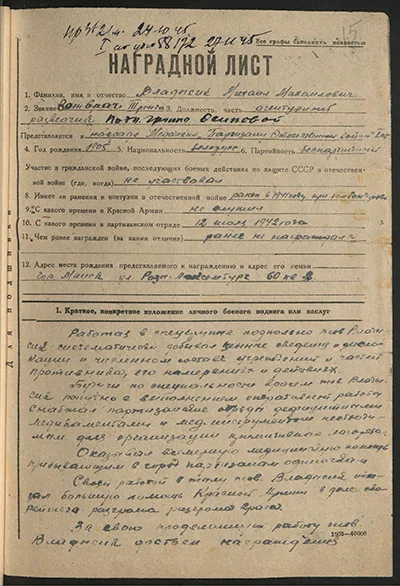 24.10.45
27.11.45
Все графы заполнять полностью
НАГРАДНОЙ ЛИСТ
1. Фамилия, имя и отчество Владысик Михаил Михайлович
2. Звание 3. Должность, часть агентурный
разведчик Осиповой
Представляется к награде Медалью Партизану Отечественной войны
4. Год рождения 1905 5. Национальность белорус 6. Партийность беспартийный
Участие в гражданской войне, последующих боевых действиях по защите СССР и отечествен-
ной войне (где, когда) не участвовал
8. Имеет ли ранения и контузии в отечественной войне ранен в
9. С какого времени в Красной Армии не служил
10. С какого времени в партизанском отряде 12 июля 1942 года
11. Чем ранее награжден (за какие отличия) ранее не награждался
12. Адрес места рождения представляемого к награждению и адрес его семьи
гор. Минск ул. Розы-Люксембург 60 кв
Для подшивки
1. Краткое, конкретное изложение личного боевого подвига или заслуг
Работая в спецгруппе подпольно тов. Влады-
сик систематически добывал ценные сведения о дисло-
кации и численном составе учреждений и частей
противника, его намерениях и действиях.
Будучи по специальности врачом тов. Влады-
сик попутно с выполнением оперативной работы
снабжал партизанские отряды дефицитными
медикаментами и мединструментом необходи-
мым для организации
Оказывал всемерную медицинскую помощь
прибывающим в город партизанам
Своей работой в тылу тов. Владысик ока-
зал большую помощь Красной Армии в деле ско-
рейшего разгрома врага.
За свою проделанную работу тов.
Владысик достоин награждения
1503-40000